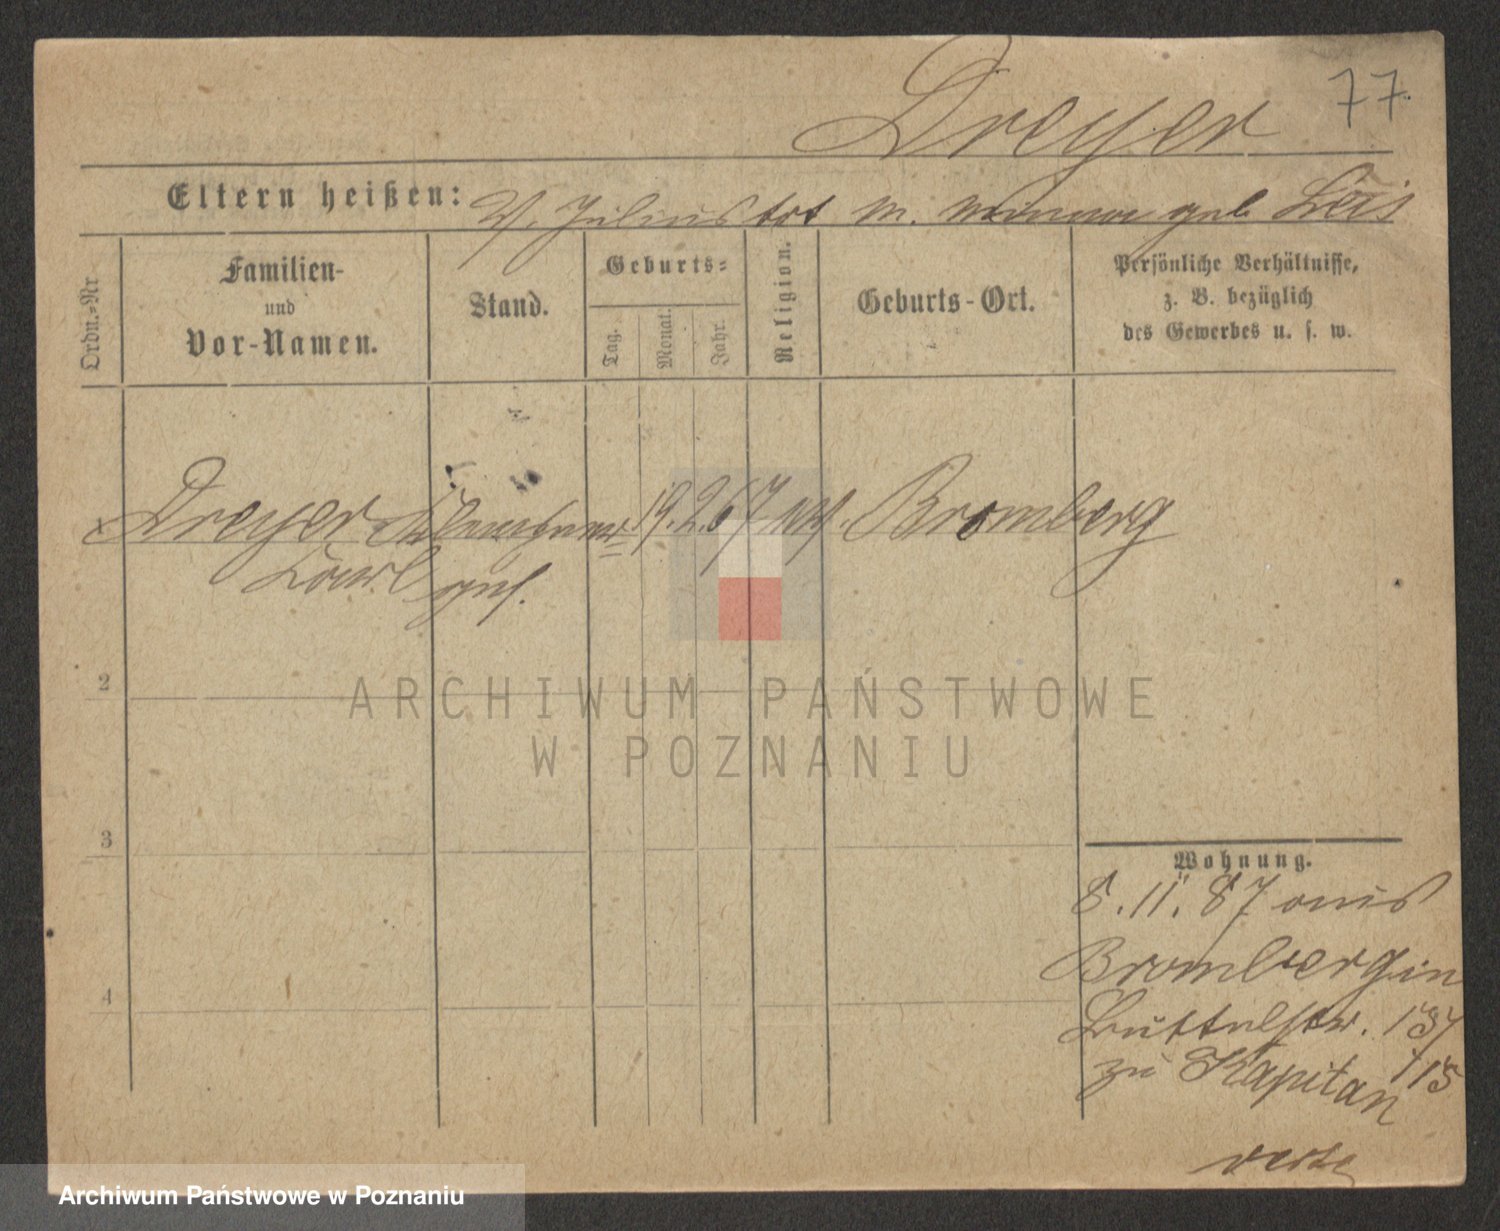 77.
Dreyer
Eltern heißen: V. Julius tot M. Minna geb. Leis
Ordn.-Nr
Familien-
und
Vor-Namen.
Stand.
Geburts-
Tag.
Monat.
Jahr.
Religion.
Geburts-Ort.
Persönliche Verhältnisse,
z. B. bezüglich
des Gewerbes u. s. w.
Dreyer Klempner 19. 2. 67 Bromberg
Karl
2
3
4
Wohnung.
8. 11. 87 aus
Bromberg in
zu Kapitan
ARCHIWUM PAŃSTWOWE
W POZNANIU
Archiwum Państwowe w Poznaniu